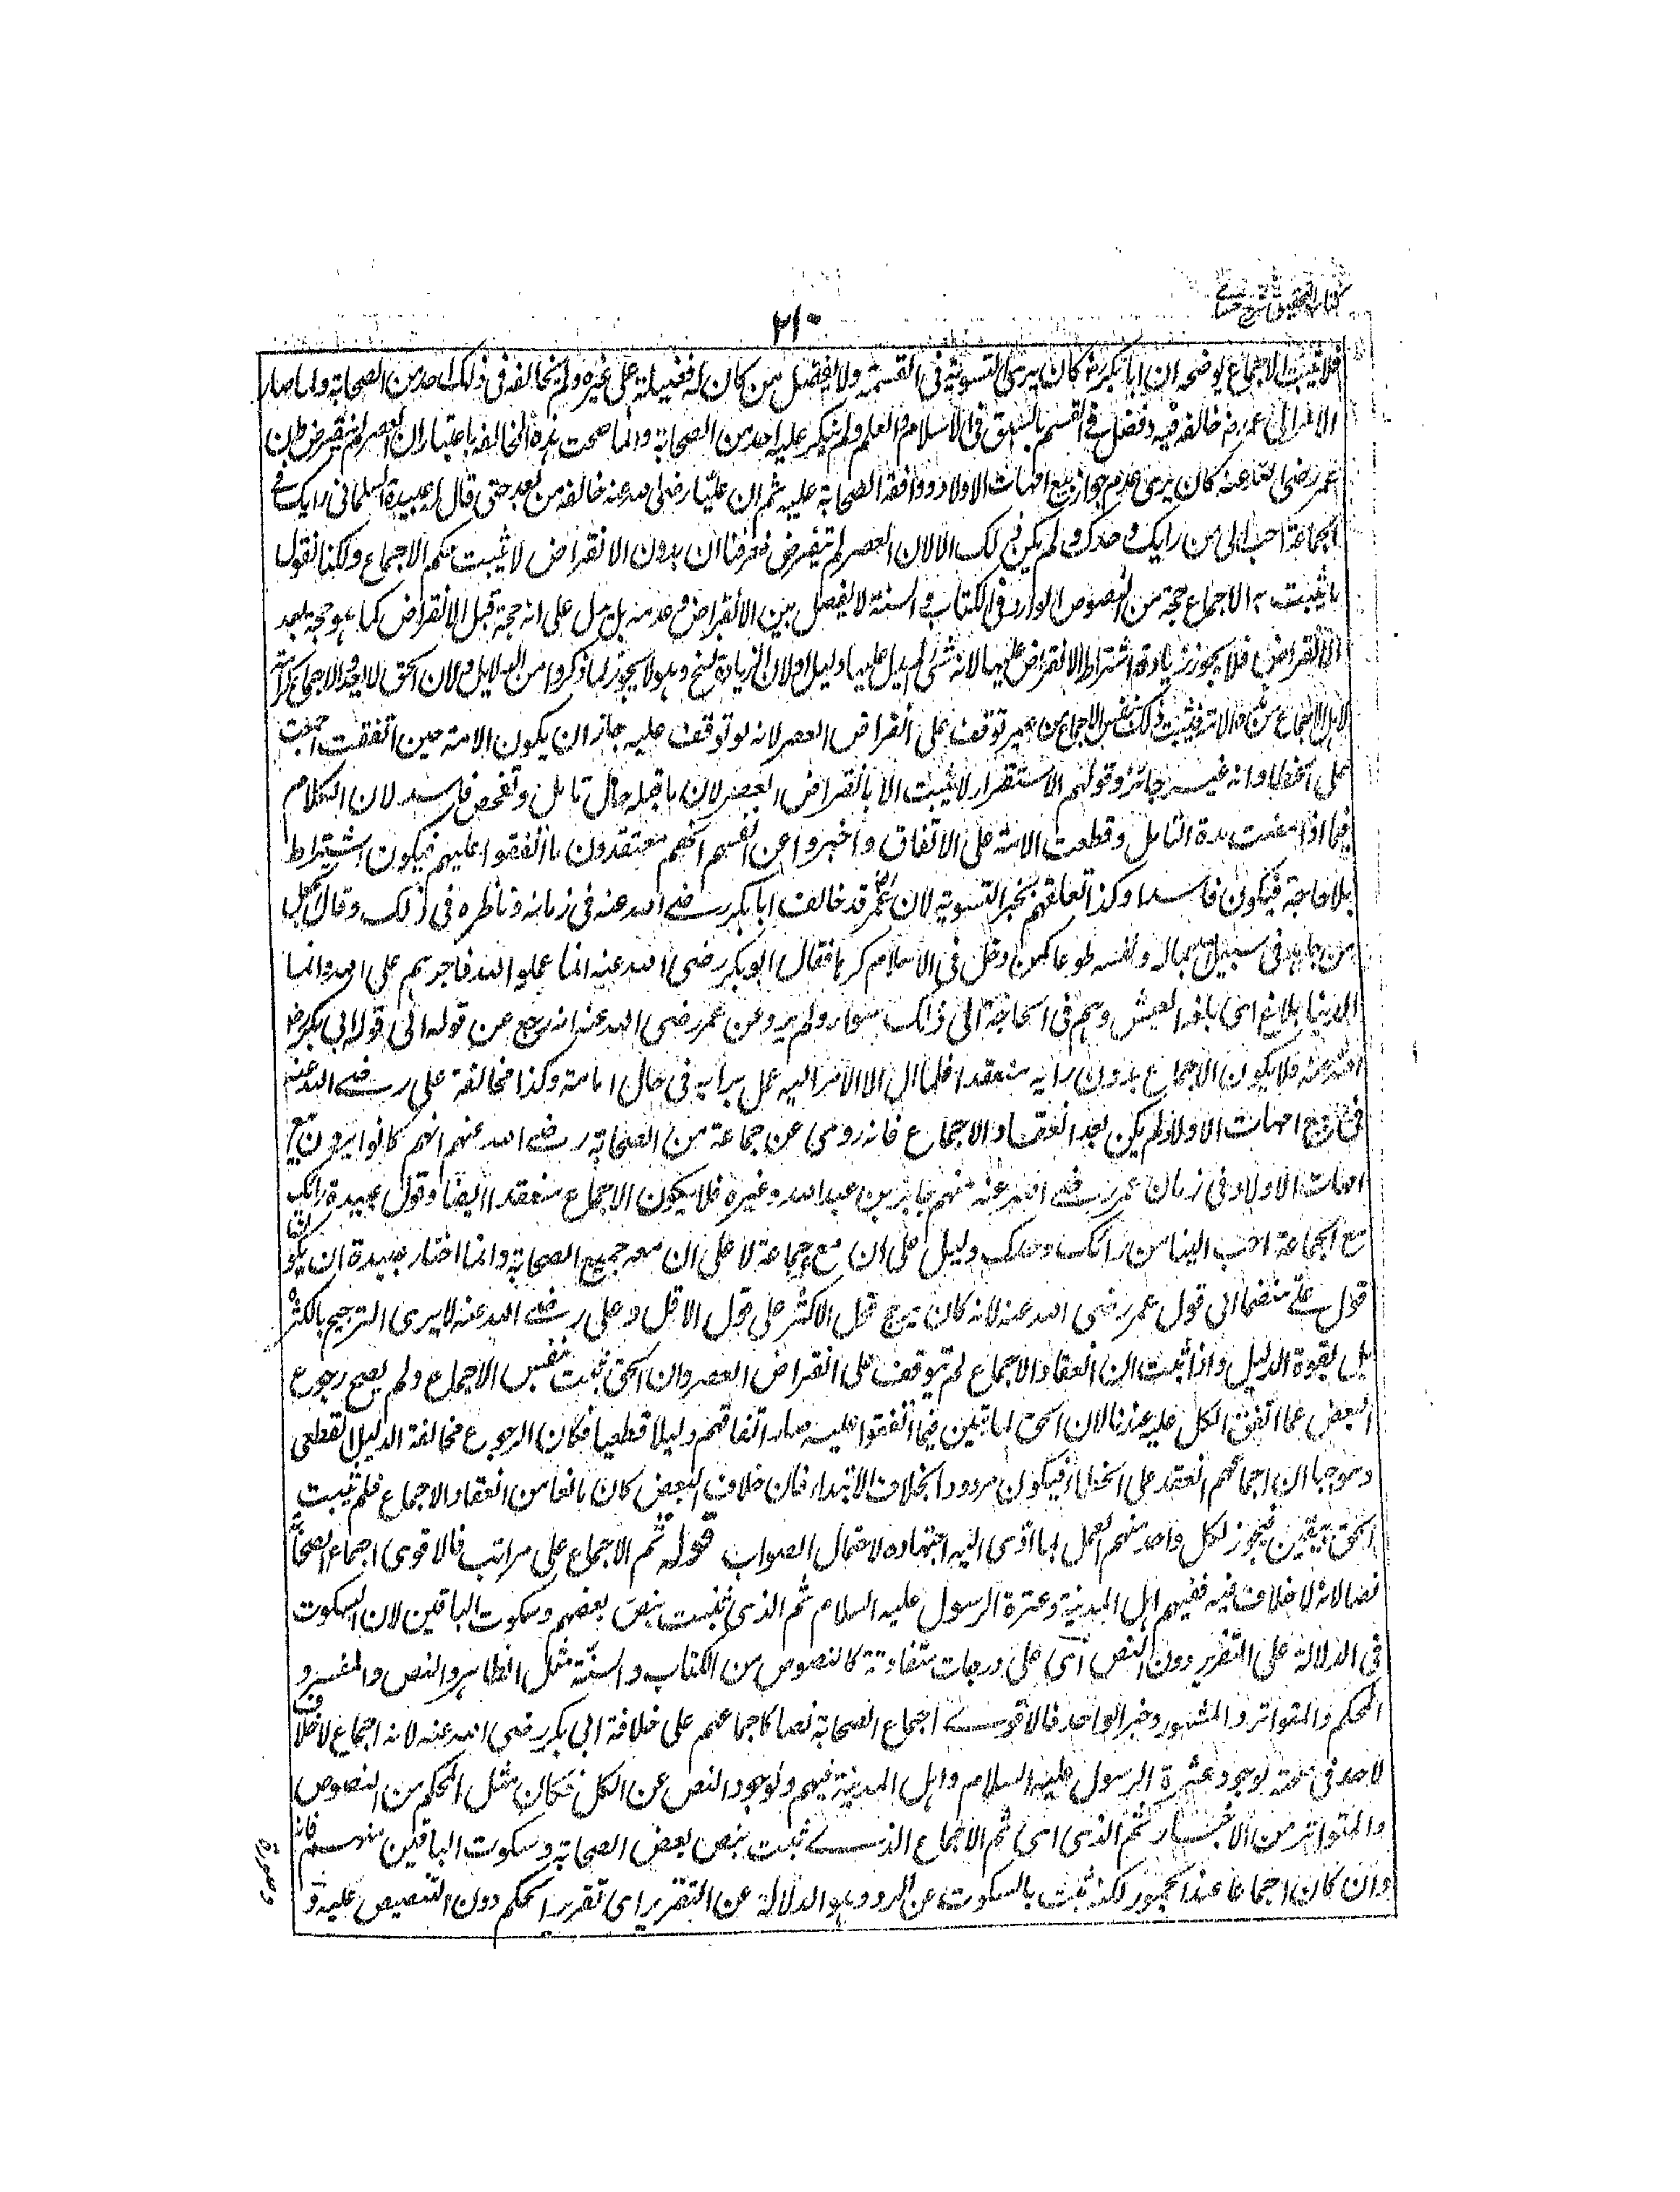 كتاب التحقيق شرح حسامى
٢١٠
فلا يثبت الاجماع يوضحه ان ابا بكر رض كان يرى التسوية فى القسمة ولا يفضل من كان له فضيلة على غيره ولم يخالفه فى ذلك احد من الصحابة ولما صار
الامر الى عمر رض خالفه فيه وفضل فى القسم بالسبق فى الاسلام والعلم ولم ينكر عليه احد من الصحابة وانما صحت هذه المخالفة باعتبار ان العصر لم ينقرض وان
عمر رضى الله عنه كان يرى عدم جواز بيع امهات الاولاد ووافقه الصحابة عليه ثم ان عليا رضى الله عنه خالفه من بعد حتى قال له عبيدة السلمانى رايك فى
الجماعة احب الى من رايك وحدك ولم يكن ذلك الا لان العصر لم ينقرض فعرفنا ان بدون الانقراض لا يثبت حكم الاجماع ولكنا نقول
ما يثبت به الاجماع حجة من النصوص الواردة فى الكتاب والسنة لا يفصل بين الانقراض وعدمه بل يدل على انه حجة قبل الانقراض كما هو حجة بعد
الانقراض فلا يجوز زيادة اشتراط الانقراض عليها لانه شئ لم يدل عليها دليل ولان الزيادة نسخ وهو لا يجوز لما ذكروا من الدلايل ولان الحق لا يعدو الاجماع كرامة
لاهل الاجماع من هذه الامة فيثبت ذلك بنفس الاجماع من غير توقف على انقراض العصر لانه لو توقف عليه جاز ان يكون الامة حين اتفقت اجتمعت
على الخطا وانه غير جائز وقولهم الاستقرار لا يثبت الا بانقراض العصر لان ما قبله حال تامل وتفحص فاسد لان الكلام
فيما اذا مضت مدة التامل وقطعت الامة على الاتفاق واخبروا عن انفسهم انهم معتقدون ما اتفقوا عليهم فيكون اشتراط
بلا حاجة فيكون فاسدا وكذا تعلقهم بخبر التسوية لان عمر رض قد خالف ابا بكر رضى الله عنه فى زمانه وناظره فى ذلك وقال اتجعل
من جاهد فى سبيل الله بماله ونفسه طوعا كمن دخل فى الاسلام كرها فقال ابو بكر رضى الله عنه انما عملوا لله فاجرهم على الله وانما
الدنيا بلاغ اى بلغة العيش وهم فى الحاجة الى ذلك سواء ولم يرو عن عمر رضى الله عنه انه رجع عن قوله الى قول ابى بكر رض
الله عنه فلا يكون الاجماع بدون رايه منعقدا فلما ال الامر اليه عمل برايه فى حال امامته وكذا مخالفة على رضى الله عنه
فى بيع امهات الاولاد لم يكن بعد انعقاد الاجماع فانه روى عن جماعة من الصحابة رضى الله عنهم انهم كانوا يرون بيع
امهات الاولاد فى زمان عمر رضى الله عنه منهم جابر بن عبد الله وغيره فلا يكون الاجماع منعقدا ايضا وقول عبيدة رايك
مع الجماعة احب الينا من رايك وحدك دليل على ان معه جماعة لا على ان معه جميع الصحابة وانما اختار عبيدة ان يكون
قول على منضما الى قول عمر رضى الله عنه لانه كان يرجح قول الاكثر على قول الاقل وعلى رضى الله عنه لا يرى الترجيح بالكثرة
بل بقوة الدليل واذا ثبت ان انعقاد الاجماع لم يتوقف على انقراض العصر وان الحق يثبت بنفس الاجماع ولم يصح رجوع
البعض عما اتفق الكل عليه عندنا لان الحق لما تعين فيما اتفقوا عليه صار اتفاقهم دليلا قطعيا فكان الرجوع مخالفة الدليل القطعى
وموجبا ان اجماعهم انعقد على الخطا فيكون مردودا بخلاف الابتداء فان خلاف البعض كان مانعا من انعقاد الاجماع فلم يثبت
الحق بيقين فيجوز لكل واحد منهم العمل بما ادى اليه اجتهاده لاحتمال الصواب قوله ثم الاجماع على مراتب فالاقوى اجماع الصحابة
نصا لانه لا خلاف فيه ففيهم اهل المدينة وعترة الرسول عليه السلام ثم الذى ثبت بنص بعضهم وسكوت الباقين لان السكوت
فى الدلالة على التقرير دون النص اى على درجات متفاوتة كالنصوص من الكتاب والسنة مثل الظاهر والنص والمفسر و
المحكم والمتواتر والمشهور وخبر الواحد فالاقوى اجماع الصحابة نصا كاجماعهم على خلافة ابى بكر رضى الله عنه لانه اجماع لا خلاف
لاحد فى صحته لوجود عترة الرسول عليه السلام واهل المدينة فيهم ولوجود النص عن الكل فكان مثل المحكم من النصوص
والمتواتر من الاخبار ثم الذى اى ثم الاجماع الذى ثبت بنص بعض الصحابة وسكوت الباقين منهم فانه
وان كان اجماعا عند الجمهور لكنه ثبت بالسكوت عن الرد وهو الدلالة عن التقرير اى تقرير الحكم دون التنصيص عليه و